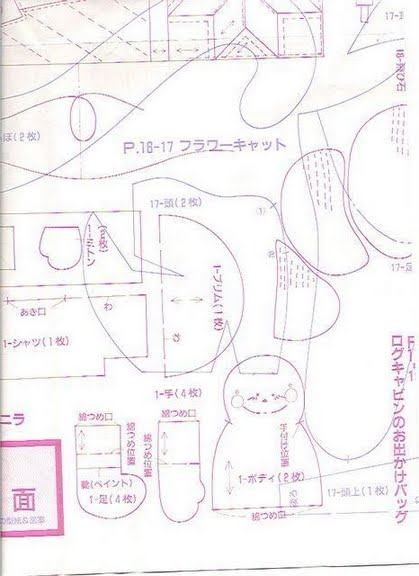 17-
P.16-17 フラワーキャット
ぽ(2枚)
17-頭(2枚)
1-ミトン
(4枚)
1-ブリム(1枚)
わ
あき口
わ
1-シャツ(1枚)
1-手(4枚)
綿つめ口
綿つめ口
綿つめ位置
綿つめ位置
靴(ペイント)
1-足(4枚)
手付け位置
1-ボディ(2枚)
綿つめ口
17-頭上(1枚)
17-足
ログキャビンのお出かけバッグ
ニラ
面
の型紙&図案